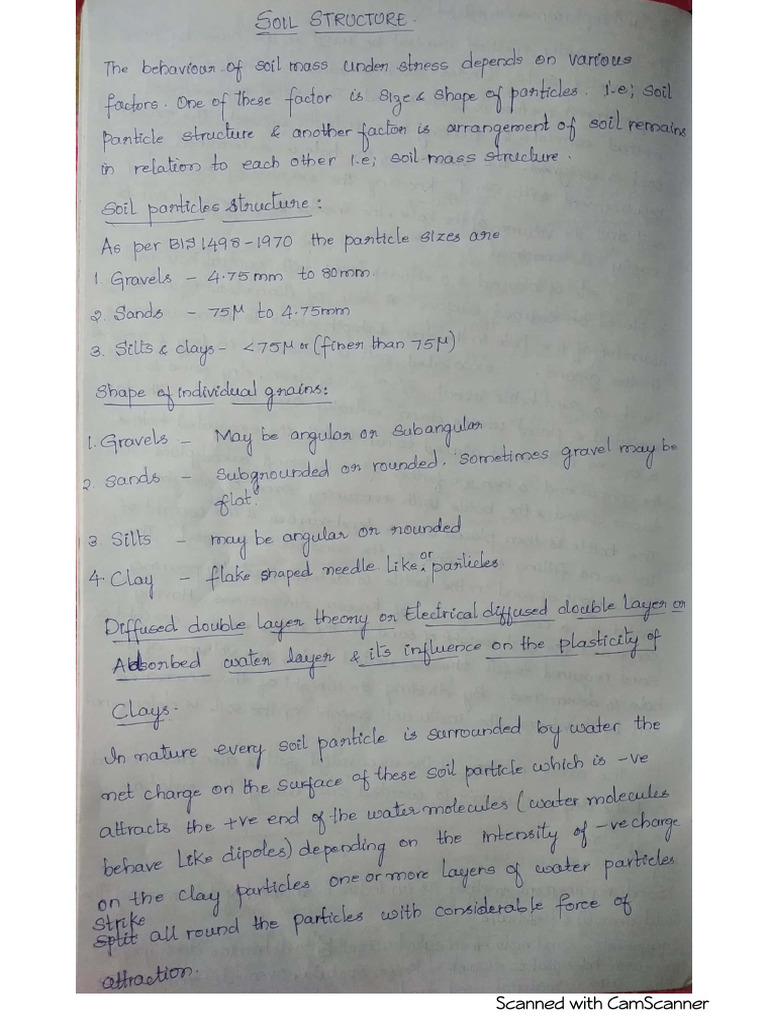 SOIL STRUCTURE.
The behaviour of soil mass under stress depends on various
factors. One of these factor is size & shape of particles. i.e; soil
particle structure & another factor is arrangement of soil remains
in relation to each other i.e; soil mass structure.
Soil particles structure :
As per BIS 1498-1970 the particle sizes are
1. Gravels - 4.75mm to 80mm.
2. Sands - 75μ to 4.75mm
3. Silts & clays - <75μ or (finer than 75μ)
Shape of individual grains:
1. Gravels - May be angular or subangular
2. Sands - Subgrounded or rounded. Sometimes gravel may be
flat.
3. Silts - may be angular or rounded
4. Clay - flake shaped needle like or particles.
Diffused double layer theory or Electrical diffused double layer or
Adsorbed water layer & its influence on the plasticity of
Clays.
In nature every soil particle is surrounded by water the
net charge on the surface of these soil particle which is -ve
attracts the +ve end of the water molecules (water molecules
behave like dipoles) depending on the intensity of -ve charge
on the clay particles one or more layers of water particles
Strike
split all round the particles with considerable force of
attraction.
Scanned with CamScanner